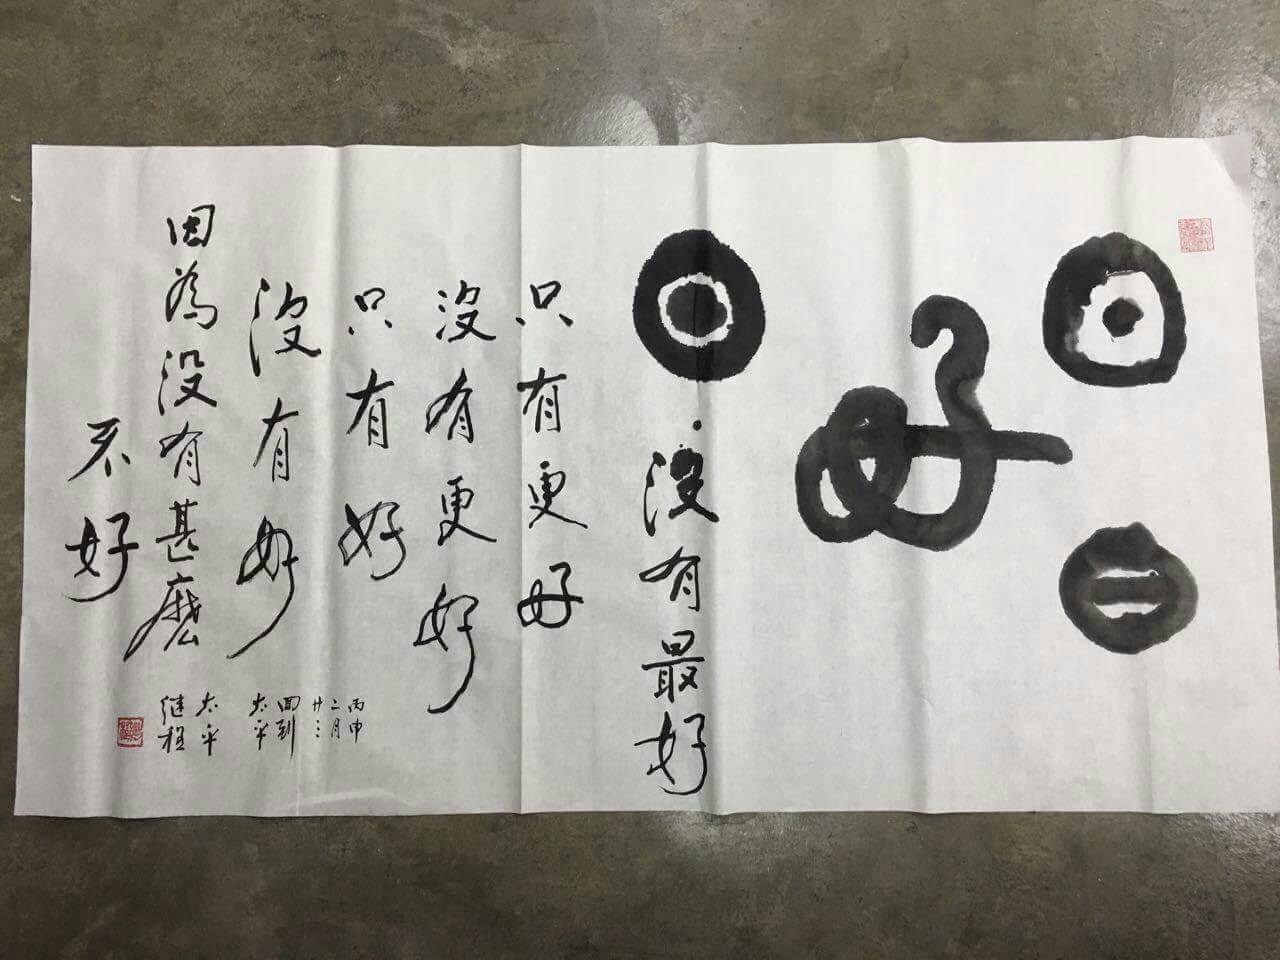 日日
好
日
·没有最好
只有更好
没有更好
只有好
没有好
因為没有甚麽
不好
丙申
二月
廿三
回到
太平
太平
继程